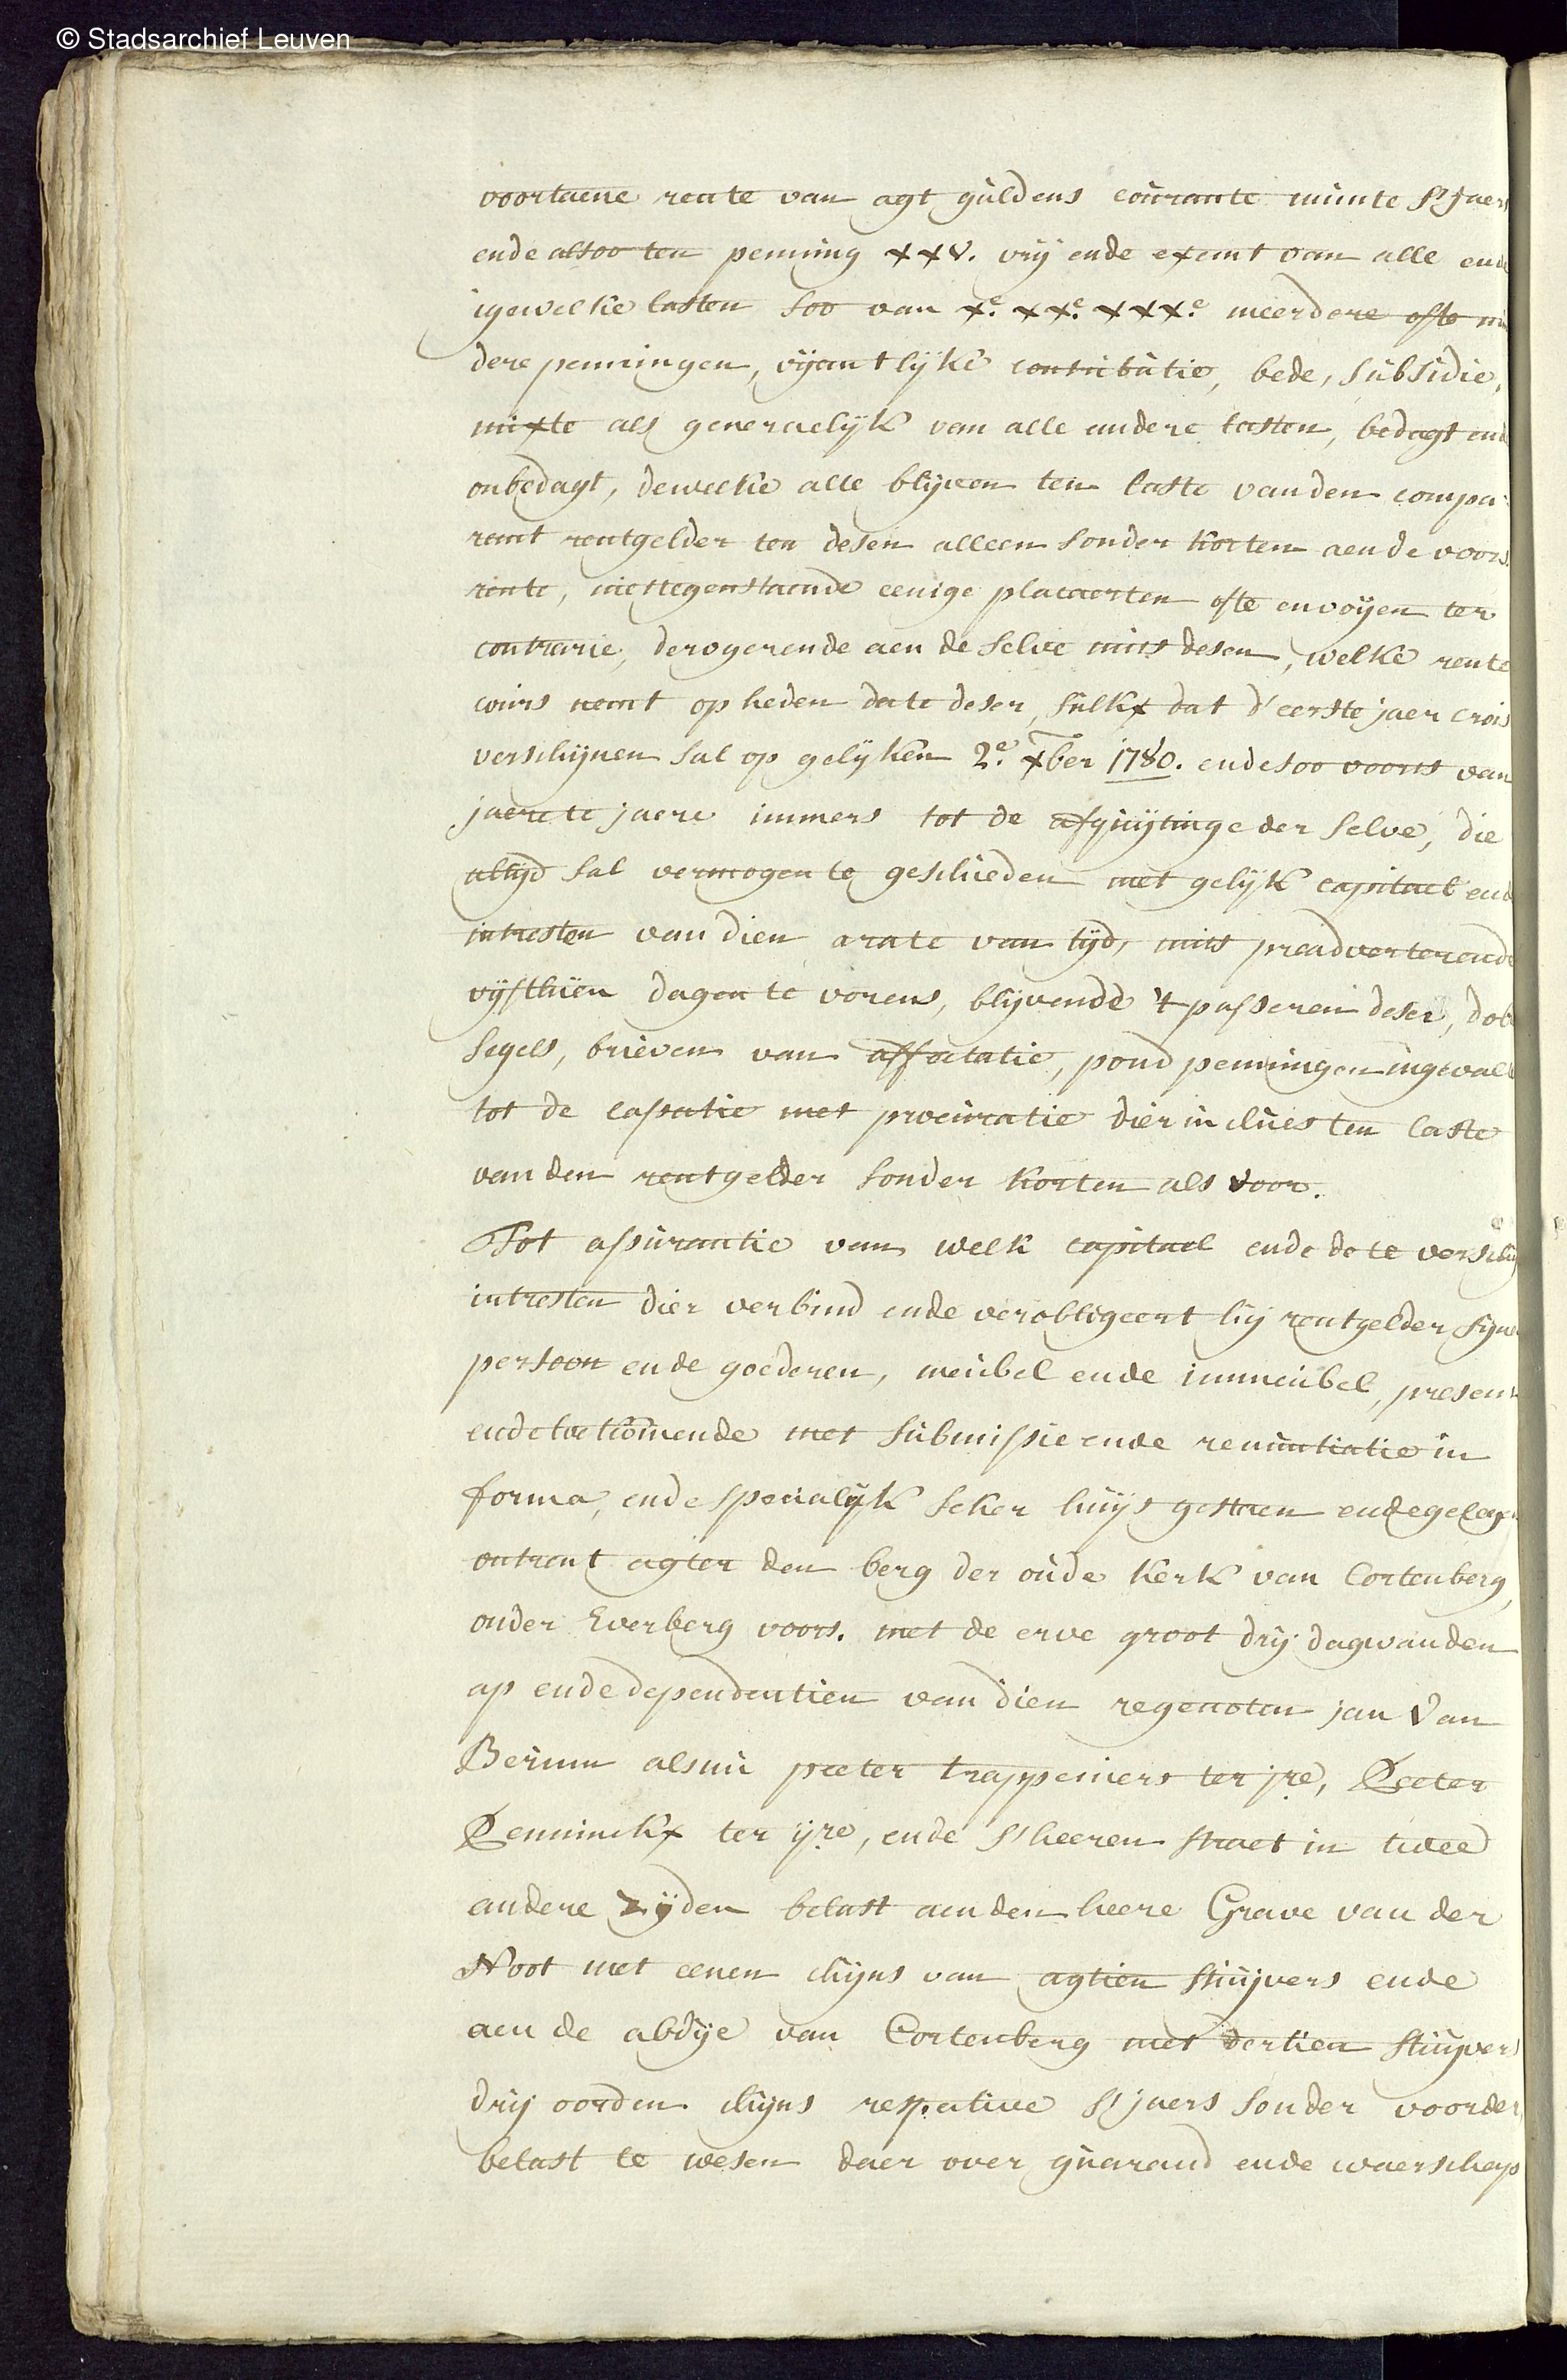 © Stadsarchief Leuven
voortaene rente van agt guldens courante munte s'jaers
ende alsoo ten penning xxv. vrij ende exemt van alle ende
igewelke lasten soo van xe. xxe. xxxe. meerdere ofte min
dere penningen, vijantlijke contributie, bede, subsidie,
mixte als generaelijk van alle andere lasten, bedagt ende
onbedagt, dewelke alle blijven ten laste van den compa-
rant rentgelder ten desen alleen sonder korten aen de voors.
rente, niettegenstaende eenige placaerten ofte envoijen ter
contrarie, derogerende aen de selve mits desen, welke rente
cours nemt op heden date deser, sulkx dat d'eerste jaer crois
verschijnen sal op gelijken 2e. xber 1780. ende soo voorts van
jaere te jaere immers tot de afquijtinge der selve, die
altijd sal vermogen te geschieden met gelijk capitael ende
intresten van dien a rate van tijd, mits preadverterende
vijfthien dagen te vorens, blijvende 't passeren deser, dob
segels, brieven van affectatie, pond penningen ingevalle
tot de cassatie met procuratie dier incluis ten laste
van den rentgelder sonder korten als voor.
Tot assurantie van welk capitael ende de te verschij
intresten dier verbind ende verobligeert hij rentgelder sijnen
persoon ende goederen, meubel ende immeubel, present
ende toekomende met submissie ende renuntiatie in
forma, ende specialijk seker huijs gestaen ende gelegen
ontrent agter den berg der oude kerk van Cortenberg,
onder Everberg voors. met de erve groot drij dagwanden
ap ende dependentien van dien regenoten jan Van
Berum alsnu peeter trappeniers ter jre, Peeter
Penninckx ter ijre, ende s'heeren straet in twee
andere zijden belast aen den heere Grave van der
Noot met eenen chijns van agtien stuijvers ende
aen de abdije van Cortenberg met dertien stuijvers
drij oorden chijns respective s'jaers sonder voorder
belast te wesen daer over guarand ende waerschap